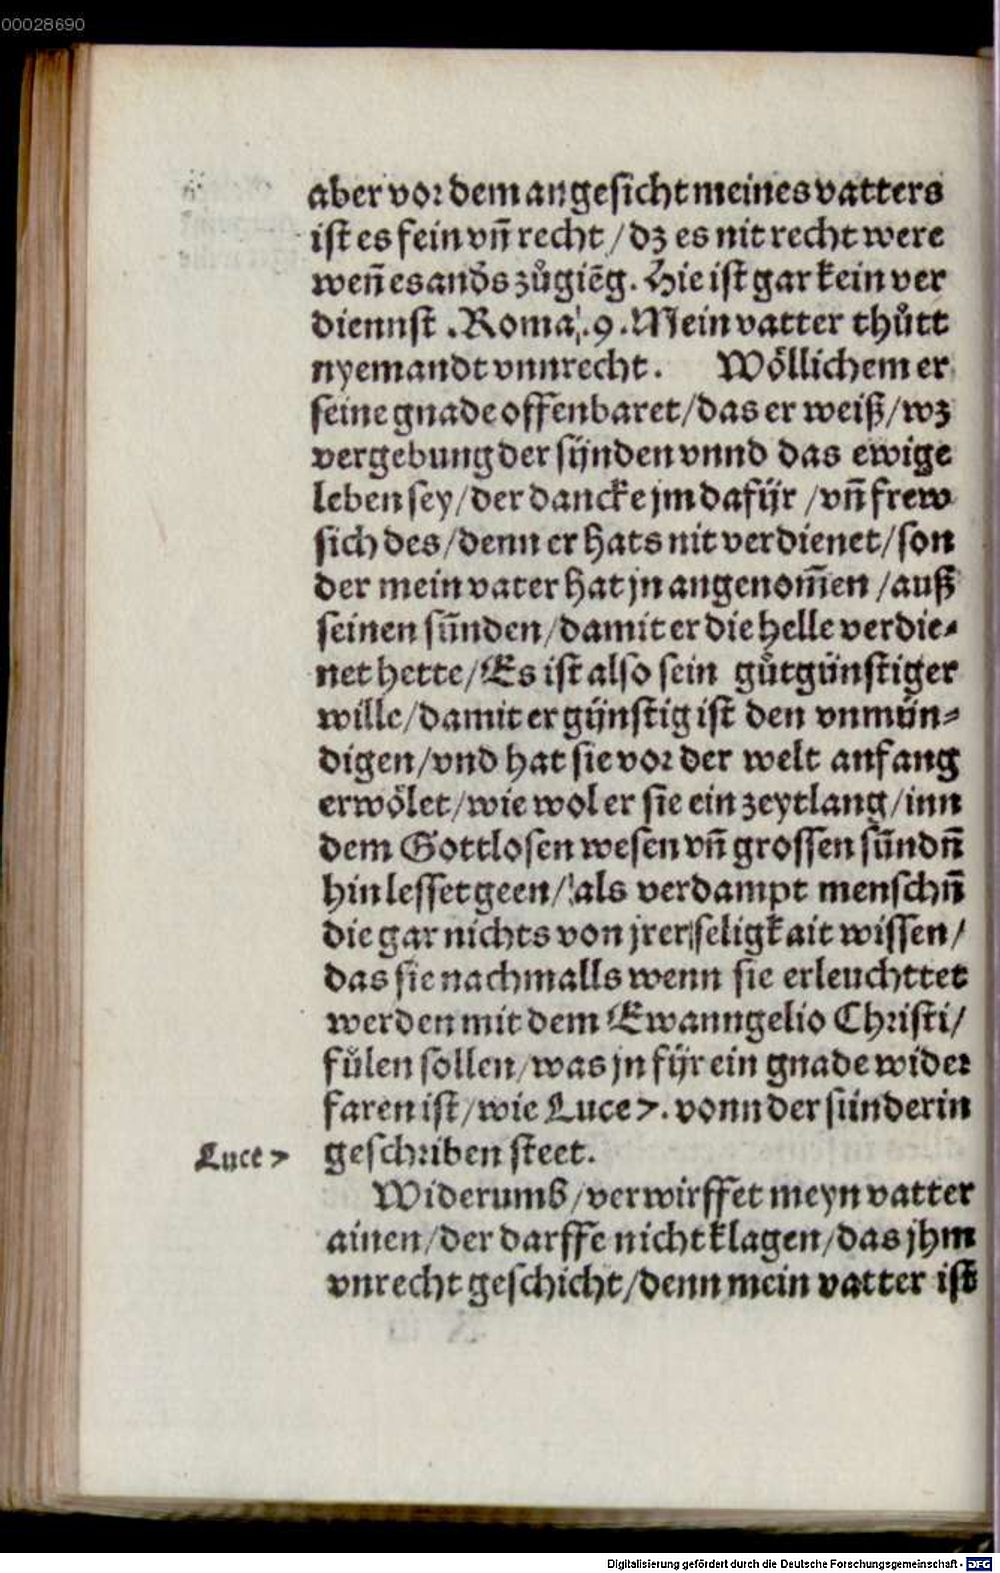 00028690
aber vor dem angesicht meines vatters
ist es fein vñ recht / dz es nit recht were
weñ es anďs zůgiẽg. Hie ist gar kein ver
diennst . Roma. 9. Mein vatter thůtt
nyemandt vnnrecht. Wöllichem er
seine gnade offenbaret / das er weiß / wz
vergebung der sünden vnnd das ewige
leben sey / der dancke jm dafür / vñ frew
sich des / denn er hats nit verdienet / son
der mein vater hat jn angenom̃en / auß
seinen sünden / damit er die helle verdie-
net hette / Es ist also sein gůtgünstiger
wille / damit er günstig ist den vnmün-
digen / vnd hat sie vor der welt anfang
erwölet / wie wol er sie ein zeytlang / inn
dem Gottlosen wesen vñ grossen sündñ
hin lesset geen / als verdampt menschñ
die gar nichts von jrer seligkait wissen /
das sie nachmalls wenn sie erleuchttet
werden mit dem Ewanngelio Christi /
fůlen sollen / was jn für ein gnade wider
faren ist / wie Luce 7. vonn der sünderin
Luce 7 geschriben steet.
Widerumb / verwirffet meyn vatter
ainen / der darffe nicht klagen / das jhm
vnrecht geschicht / denn mein vatter ist
Digitalisierung gefördert durch die Deutsche Forschungsgemeinschaft - DFG